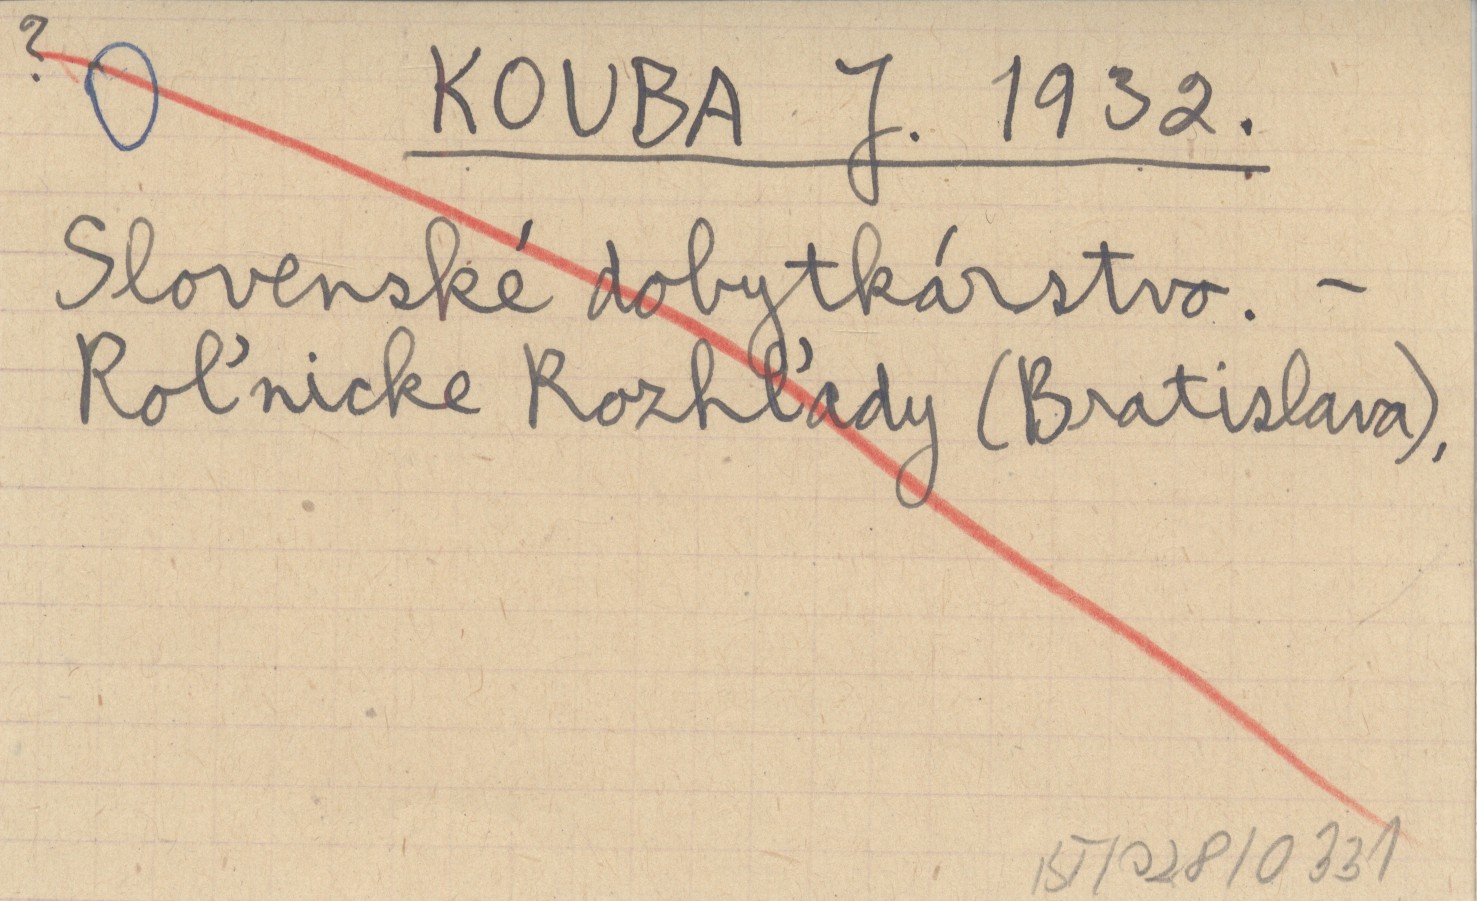 ?
KOUBA J. 1932.
Slovenské dobytkárstvo. –
Roľnicke Rozhľady (Bratislava),